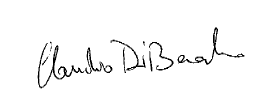 Claudio Di Berardo